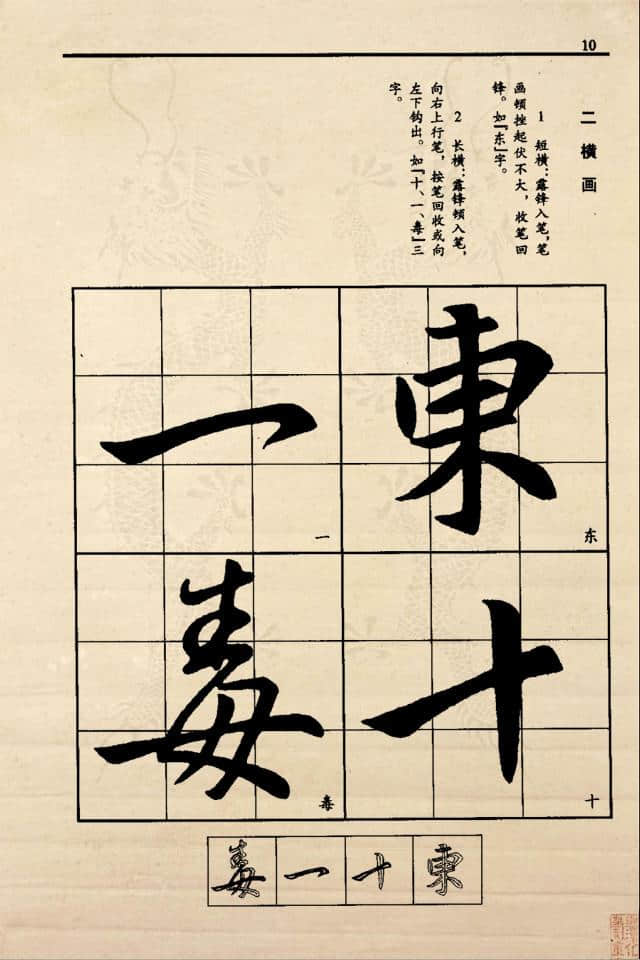 10
二 横 画
1 短横：露锋入笔，笔
画顿挫起伏不大，收笔回
锋。如『东』字。
2 长横：露锋顿入笔，
向右上行笔，按笔回收或向
左下钩出。如『十、一、毒』三
字。
東
东
十
十
一
一
毒
毒
東
十
一
毒